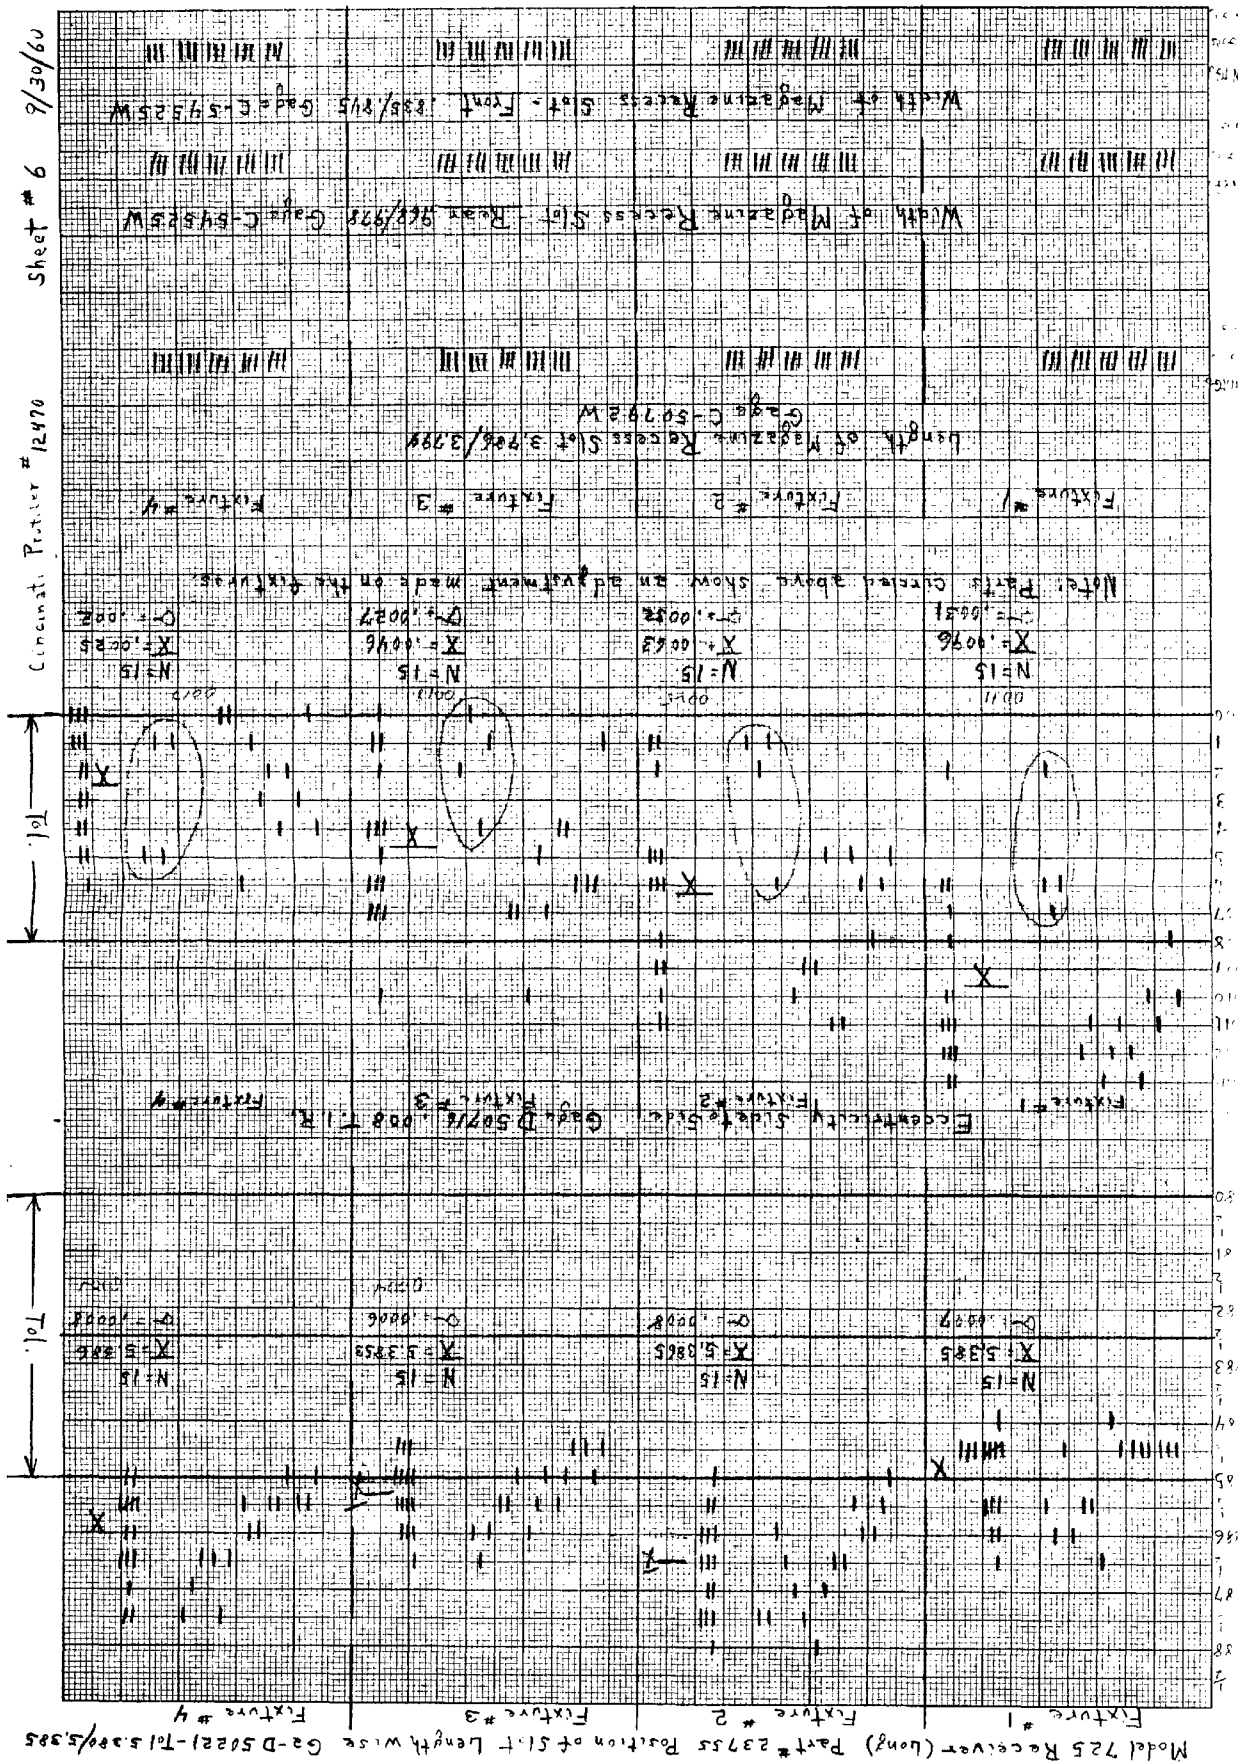 Model 725 Receiver (Long) Part # 23755 Position of Slot Length wise G2-D50221-Tol 5.380/5.385
Fixture #1 Fixture #2 Fixture #3 Fixture #4
N=15 N=15 N=15 N=15
X=5.385 X=5.3865 X=5.3853 X=5.386
σ=.0007 σ=.0008 σ=.0006 σ=.0008
Tol.
Eccentricity Side to Side Gage D50716 .008 T.I.R.
Fixture #1 Fixture #2 Fixture #3 Fixture #4
X X X X
Tol.
N=15 N=15 N=15 N=15
X=.0096 X=.0063 X=.0046 X=.0025
σ=.0031 σ=.0032 σ=.0027 σ=.002
Note: Parts circled above show an adjustment made on the fixtures.
Fixture #1 Fixture #2 Fixture #3 Fixture #4
Length of Magazine Recess Slot 3.786/3.794
Gage C-50792W
Width of Magazine Recess Slot - Rear .968/.978 Gage C-54525W
Width of Magazine Recess Slot - Front .835/.845 Gage C-54525W
Cincinati Profiler # 12470 Sheet # 6 9/30/60